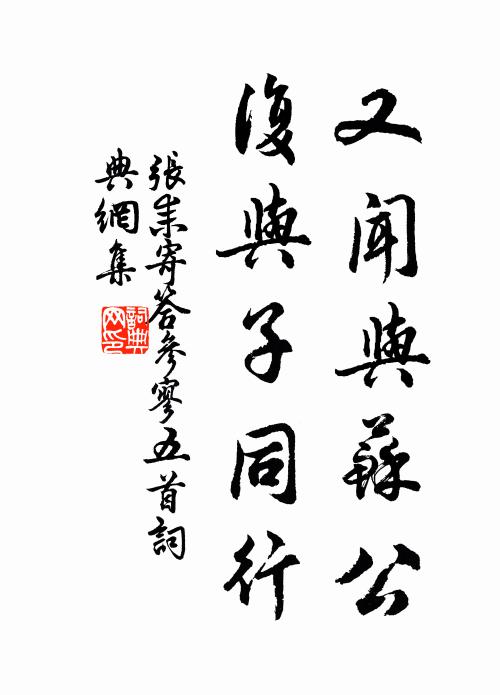 又聞與蘇公
復與子同行
張耒寄答參寥五首詞
典網集
詞典
网印